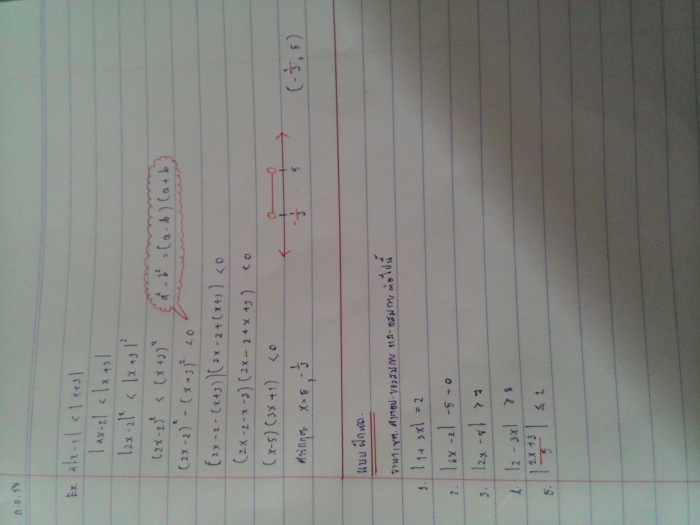 Ex. 2|x-1| < |x+3|
|2x-2| < |x+3|
|2x-2|² < |x+3|²
(2x-2)² < (x+3)²
(2x-2)² - (x+3)² < 0
a² - b² = (a-b)(a+b)
(2x-2-(x+3))(2x-2+(x+3)) < 0
(2x-2-x-3)(2x-2+x+3) < 0
(x-5)(3x+1) < 0
x = 5, -1/3
-1/3 5
(-1/3, 5)
แบบฝึกหัด
จงหาเซตคำตอบของสมการ และอสมการ ต่อไปนี้
1. |1+3x| = 2
2. |6x-2| -5 = 0
3. |2x-8| > 7
4. |2-3x| ≥ 8
5. |2x+3/5| ≤ 2